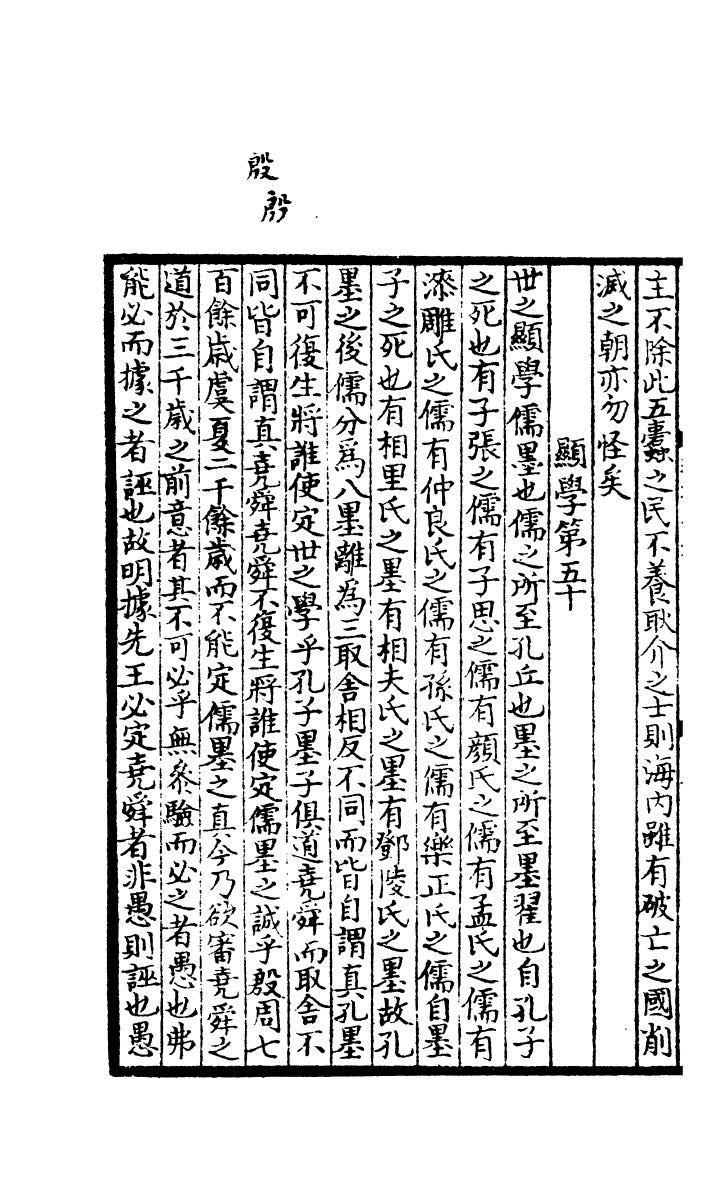 殷
殷
主不除此五蠹之民不養耿介之士則海內雖有破亡之國削
滅之朝亦勿怪矣
顯學第五十
世之顯學儒墨也儒之所至孔丘也墨之所至墨翟也自孔子
之死也有子張之儒有子思之儒有顔氏之儒有孟氏之儒有
漆雕氏之儒有仲良氏之儒有孫氏之儒有樂正氏之儒自墨
子之死也有相里氏之墨有相夫氏之墨有鄧陵氏之墨故孔
墨之後儒分爲八墨離爲三取舍相反不同而皆自謂真孔墨
不可復生將誰使定世之學乎孔子墨子俱道堯舜而取舍不
同皆自謂真堯舜堯舜不復生將誰使定儒墨之誠乎殷周七
百餘歲虞夏二千餘歲而不能定儒墨之真今乃欲審堯舜之
道於三千歲之前意者其不可必乎無參驗而必之者愚也弗
能必而據之者誣也故明據先王必定堯舜者非愚則誣也愚